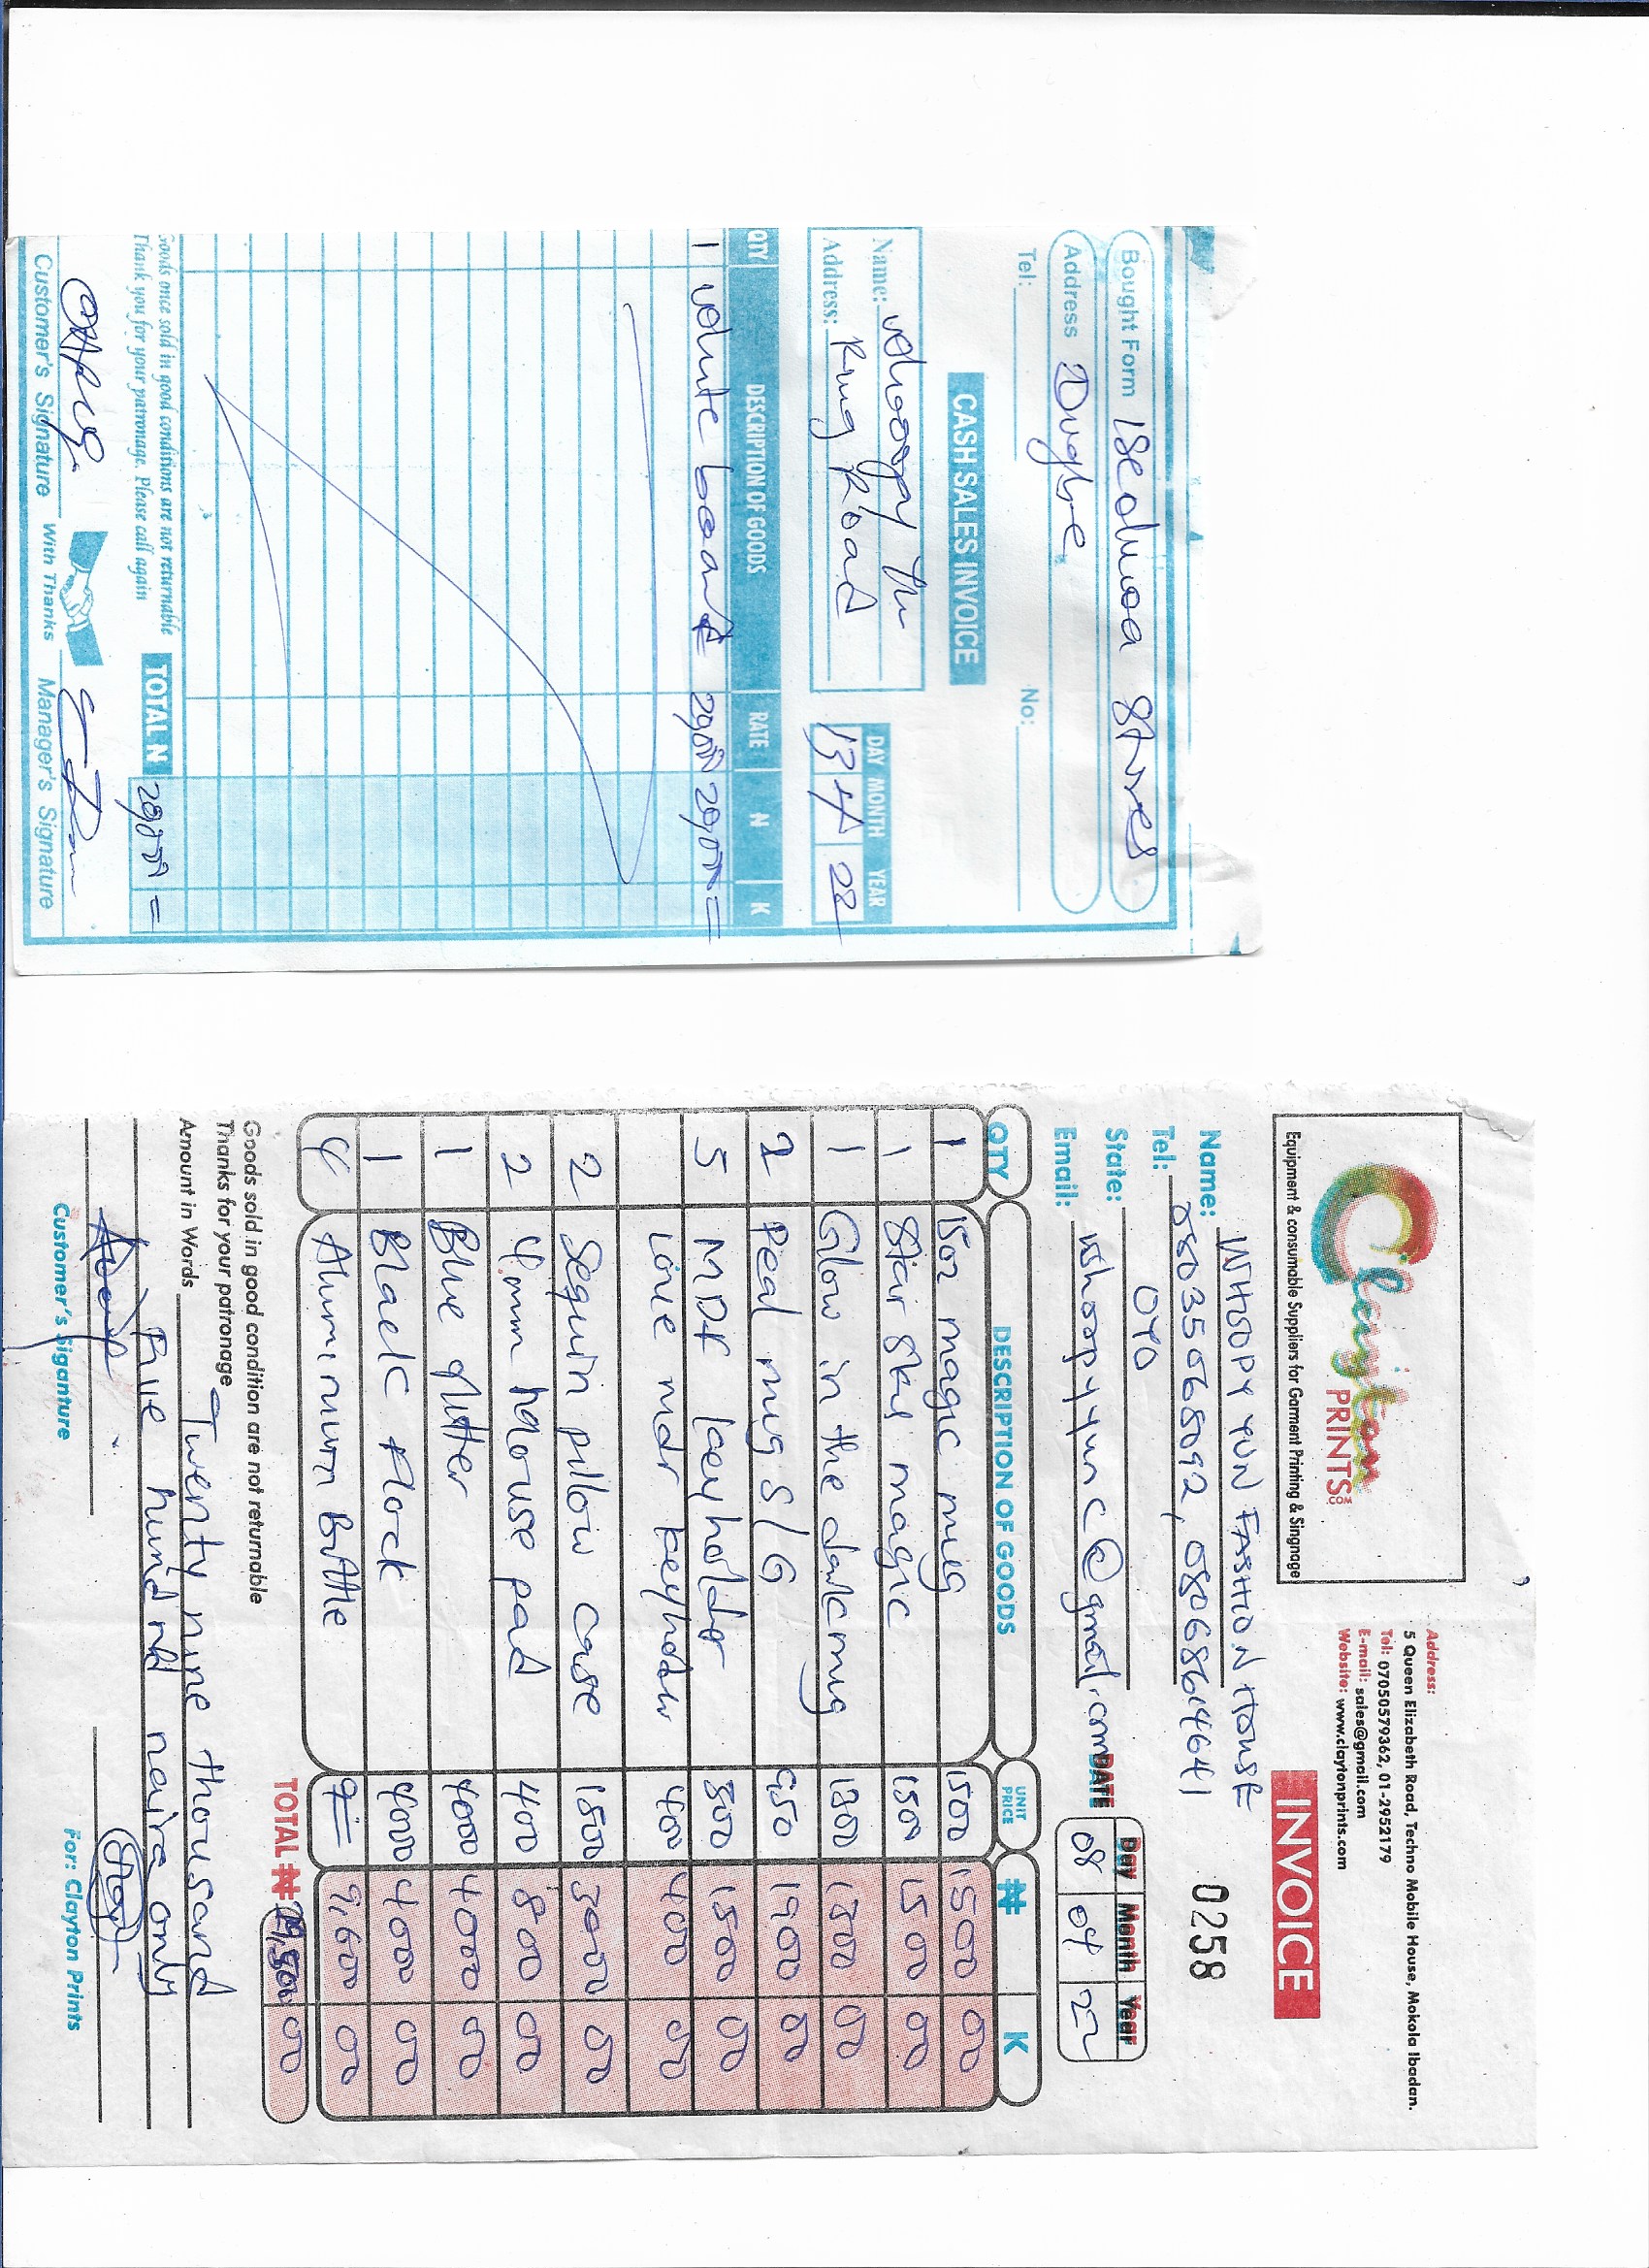 Bought Form Iseoluwa Stores
Address 2 Dugbe
Tel: No:
CASH SALES INVOICE
Name: whoopy Yun
Address: Ring Road
DAY MONTH YEAR
13 4 22
QTY DESCRIPTION OF GOODS RATE N K
1 white board 29,000 29,000 =
Goods once sold in good conditions are not returnable
Thank you for your patronage. Please call again
TOTAL N 29,000 =
Customer's Signature With Thanks Manager's Signature
Clayton
PRINTS.COM
Equipment & consumable Suppliers for Garment Printing & Singnage
Address:
5 Queen Elizabeth Road, Techno Mobile House, Mokola Ibadan.
Tel: 07050579362, 01-2952179
E-mail: sales@gmail.com
Website: www.claytonprints.com
INVOICE
Name: WHOOPY YUN FASHION HOUSE
0258
Tel: 08035068092, 08068614641
State: OYO
Day Month Year
Email: whoopyyunc@gmail.com DATE 08 04 22
QTY DESCRIPTION OF GOODS UNIT PRICE ₦ K
1 15oz magic mug 1500 1500 00
1 Star sku magic 1500 1500 00
1 Glow in the dark mug 1800 1800 00
2 Peal mug S/G 950 1900 00
5 MDF keyholder 300 1500 00
Love mdf keyholder 400 400 00
2 Sequin pillow case 1500 3000 00
2 4mm mouse pad 400 800 00
1 Blue glitter 4000 4000 00
1 Black flock 4000 4000 00
4 Aluminum Bottle 9,600 00
TOTAL ₦ 29,500 00
Goods sold in good condition are not returnable
Thanks for your patronage
Amount in Words Twenty nine thousand
Five hundred naira only
Customer's Siganture For: Clayton Prints